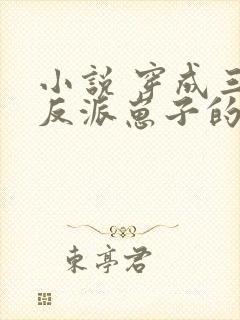 小说穿成三
反派崽子的
东亭君